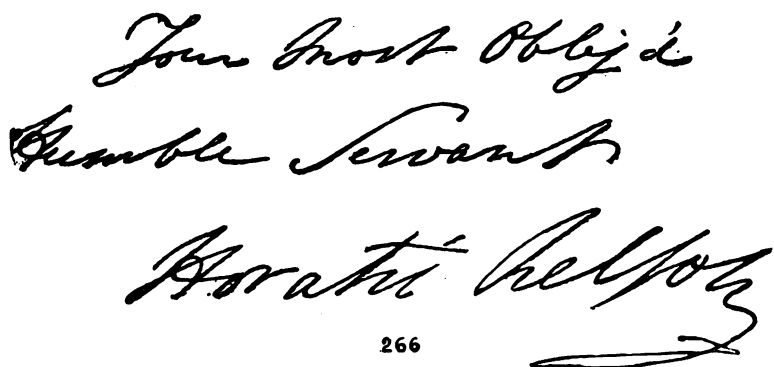 Your most Oblig'd
Humble Servant
Horatio Nelson
266